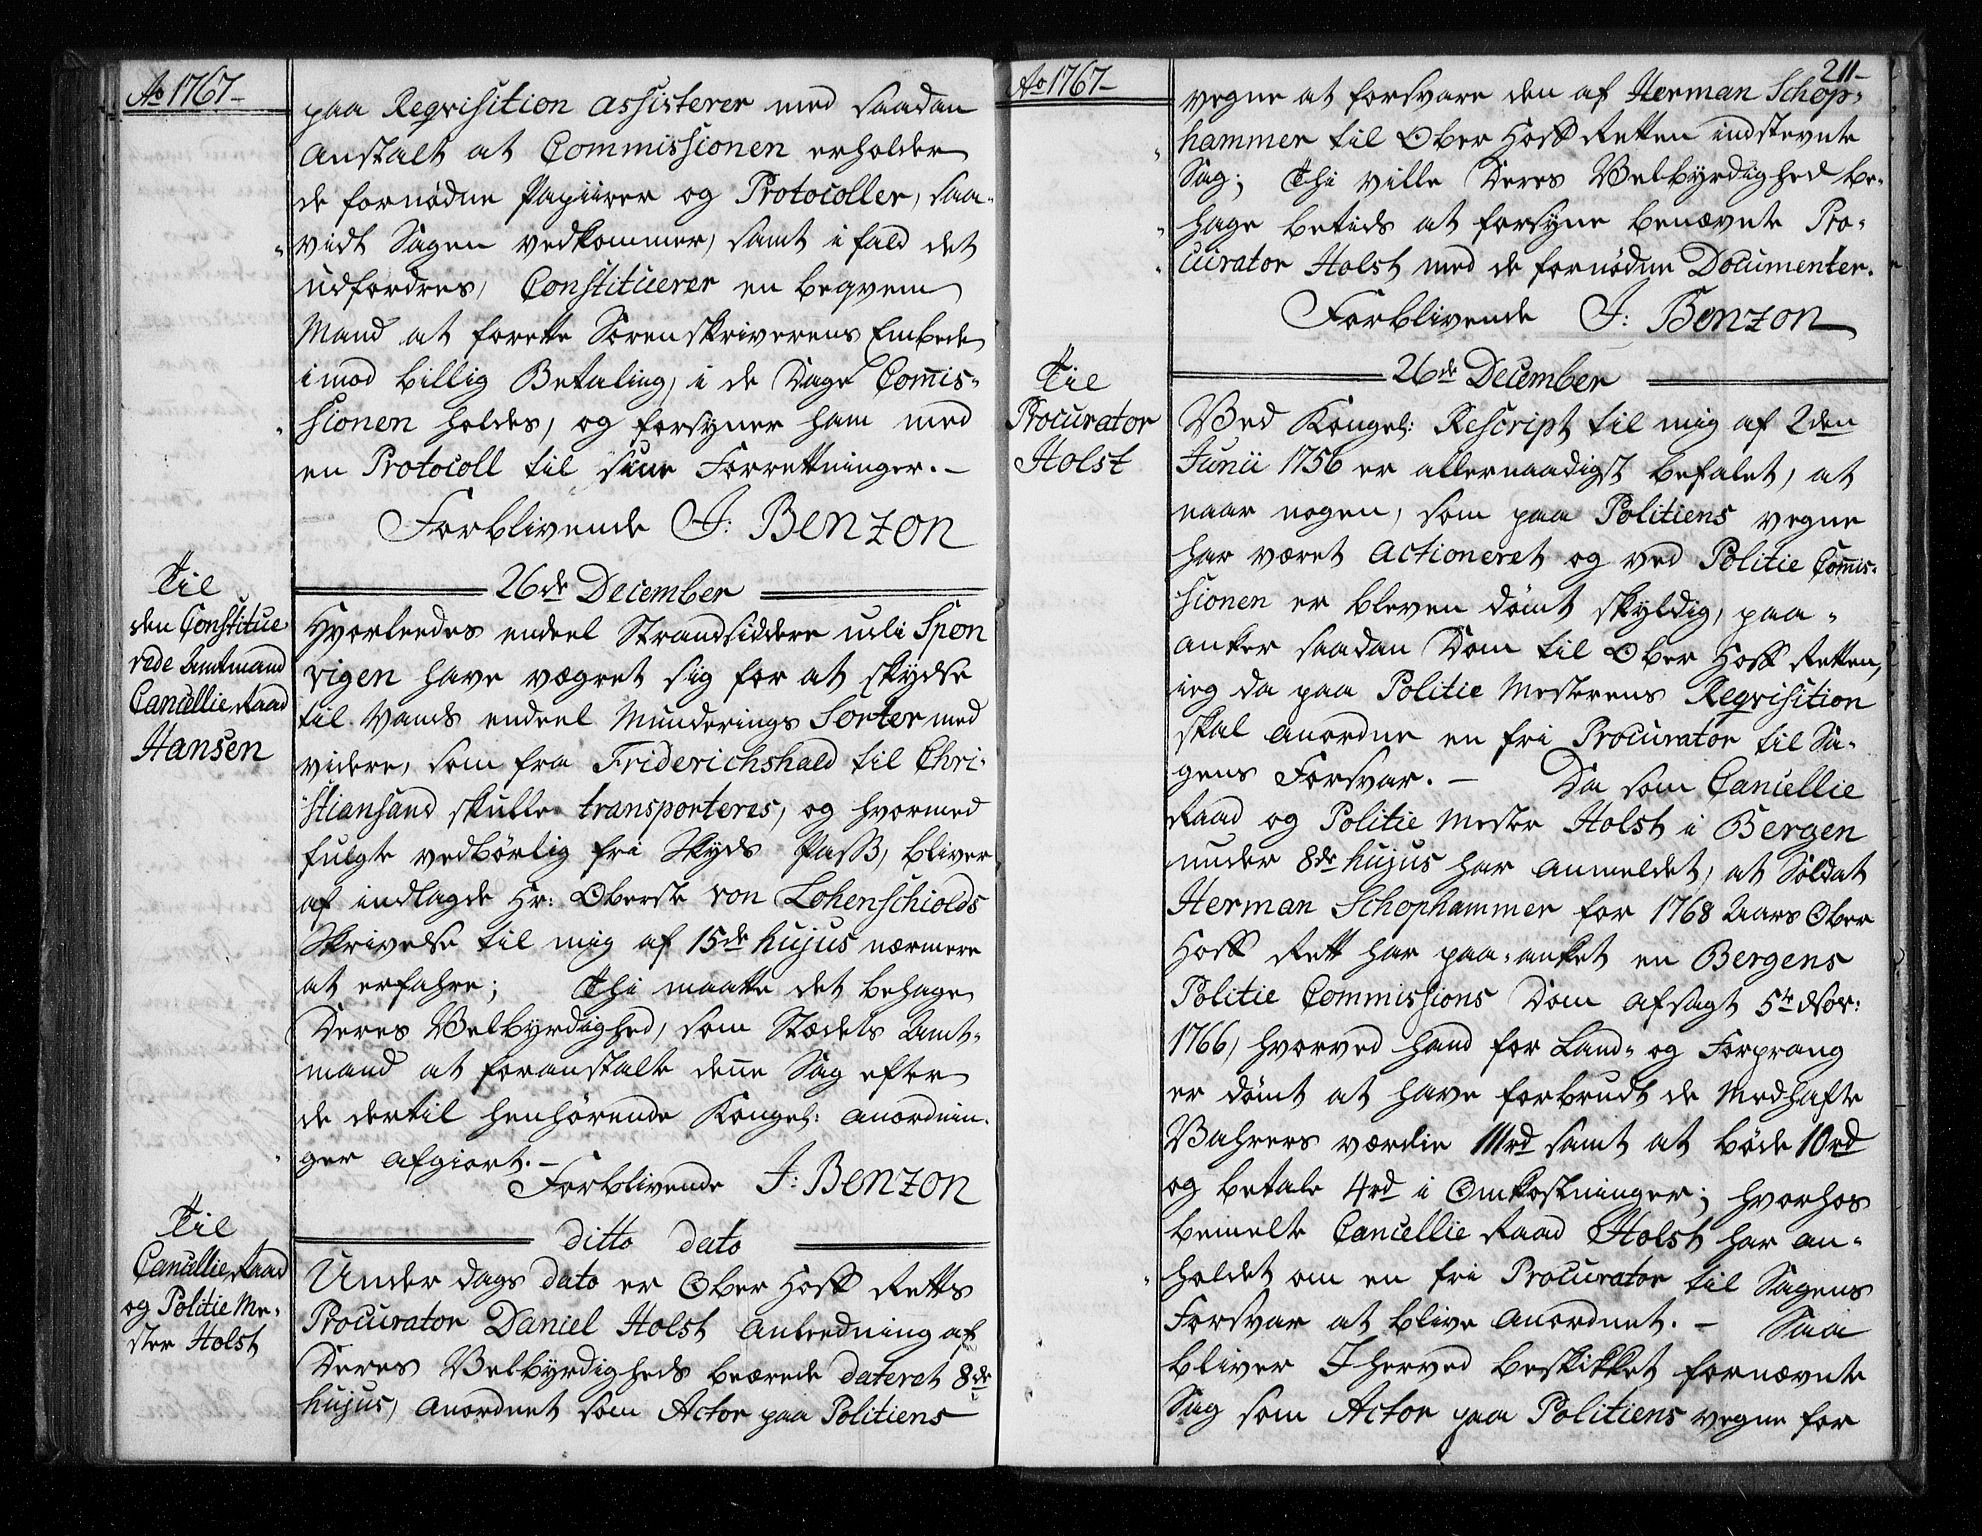 Ao 1767-
paa Reqvisition assisterer med saadan
Anstalt at Commissionen erholder
de fornødne Papiirer og Protocoller, saa-
vidt Sagen vedkommer, samt ifald det
udfordres, Constituerer en beqvem
Mand at forrette Sorenskriverens Embede
imod billig Betaling, i de Dage Com̄is-
sionen holdes, og forsyner ham med
en Protocoll til sine Forrettninger. -
Forblivende J: Benzon
26de December
Til
den Constitue-
rede Amtmand
Cancellie Raad
Hansen
Hvorleedes endeel Strandsiddere udi Spon
vigen have vægret sig for at skydse
til Vands endeel Munderings Sorter med
videre, som fra Friderichshald til Chri-
stiansand skulle transporteres, og hvormed
fulgte vedbørlig fri Skyds Pass, bliver
af indlagde Hr: Oberste von Lohenschiolds
Skrivelse til mig af 15de hujus nærmere
at erfahre; Thi maatte det behage
Deres Velbyrdighed, som Stædets Amt-
mand at foranstalte den̄e Sag efter
de dertil henhørende Kongel: Anordnin-
ger afgiort. -
Forblivende J: Benzon
ditto dato
Til
Cancellie Raad
og Politie Me-
ster Holst
Under dags dato er Ober Hoff Retts
Procurator Daniel Holst Anleedning af
Deres Velbyrdigheds beærede dateret 8de
hujus, anordnet som Actor paa Politiens
211-
Ao 1767-
vegne at forsvare den af Herman Schop-
hammer til Ober Hoff Retten indstevnte
Sag; Thi ville Deres Velbyrdighed be-
hage betids at forsyne benævnte Pro-
curator Holst med de fornødne Documenter.
Forblivende J: Benzon
26de December
Til
Procurator
Holst
Ved Kongel: Rescript til mig af 2den
Junii 1756 er allernaadigst befalet, at
naar nogen, som paa Politiens vegne
har været actioneret og ved Politie Com̄is-
sionen er bleven dømt skyldig, paa-
anker saadan Dom til Ober Hoff Retten,
ieg da paa Politie Mesterens Reqvisition
skal anordne en fri Procurator til Sa-
gens Forsvar. - Da som Cancellie
Raad og Politie Mester Holst i Bergen
under 8de hujus har anmeldet, at Soldat
Herman Schophammer for 1768 Aars Ober
Hoff Rett har paa-anket en Bergens
Politie Commissions Dom afsagt 5te
1766, hvorved hand for Land- og Forprang
er dømt at have forbrudt de Medhafte
Vahrers værdie 111rd samt at bøde 10rd
og betale 4rd i Omkostninger; hvorhos
bemelte Cancellie Raad Holst har an-
holdet om en fri Procurator til Sagens
Forsvar at blive anordnet. - Saa
bliver I herved beskikket fornævnte
Sag som Actor paa Politiens vegne for